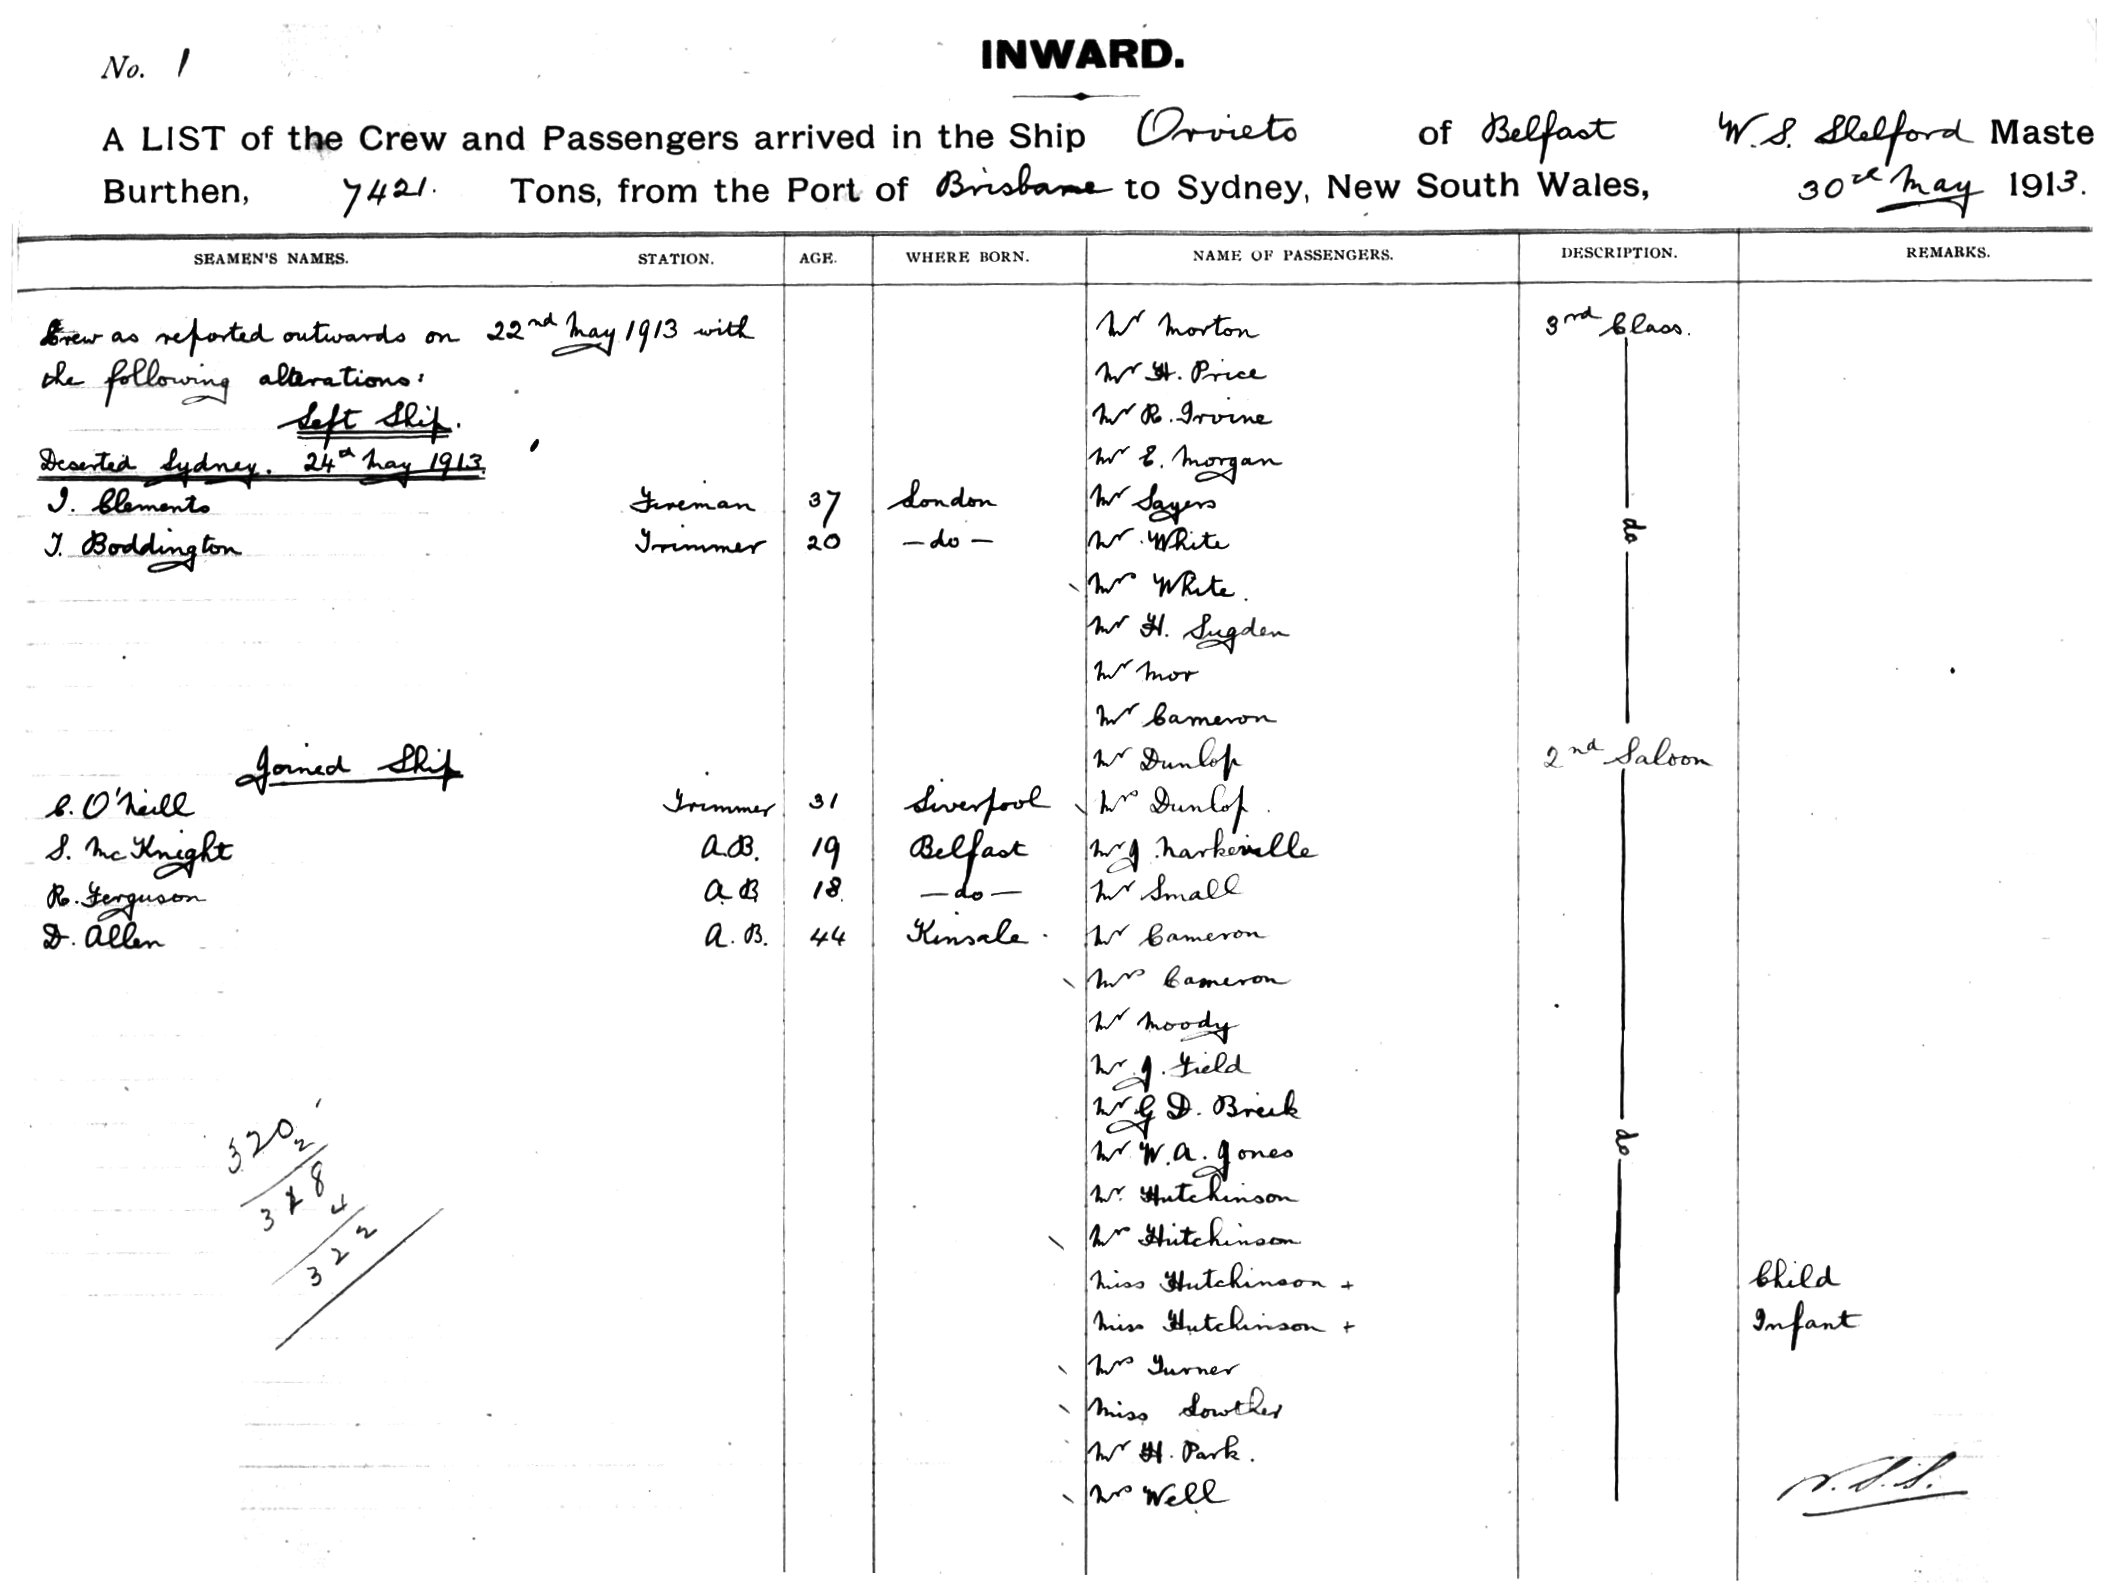 No. 1
INWARD.
A LIST of the Crew and Passengers arrived in the Ship Orvieto of Belfast W. S. Shelford Maste
Burthen, 7421. Tons, from the Port of Brisbane to Sydney, New South Wales, 30th May 1913.
SEAMEN'S NAMES. STATION. AGE. WHERE BORN. NAME OF PASSENGERS. DESCRIPTION. REMARKS.
Crew as reported outwards on 22nd May 1913 with
the following alterations:
Left Ship.
Deserted Sydney. 24th May 1913.
I. Clements Fireman 37 London
T. Boddington Trimmer 20 - do -
Joined Ship
C. O'Neill Trimmer 31 Liverpool
S. McKnight A.B. 19 Belfast
R. Ferguson A.B 18. - do -
D. Allen A.B. 44 Kinsale.
320
2
318
4
322
Mr Morton 3rd Class.
Mr H. Price
Mr R. Irvine
Mr E. Morgan
Mr Sayers
Mr White do
Mrs White.
Mr H. Sugden
Mr Mor
Mr Cameron
Mr Dunlop 2nd Saloon
Mrs Dunlop.
Mr J. Narkeville
Mr Small
Mr Cameron
Mrs Cameron
Mr Moody
Mr J. Field
Mr G D.
Mr W. A. Jones do
Mr. Hutchinson
Mrs Hutchinson
Miss Hutchinson + Child
Miss Hutchinson + Infant
Mrs Turner
Miss Lowther
Mr H. Park.
Mrs Well
W.S.S.